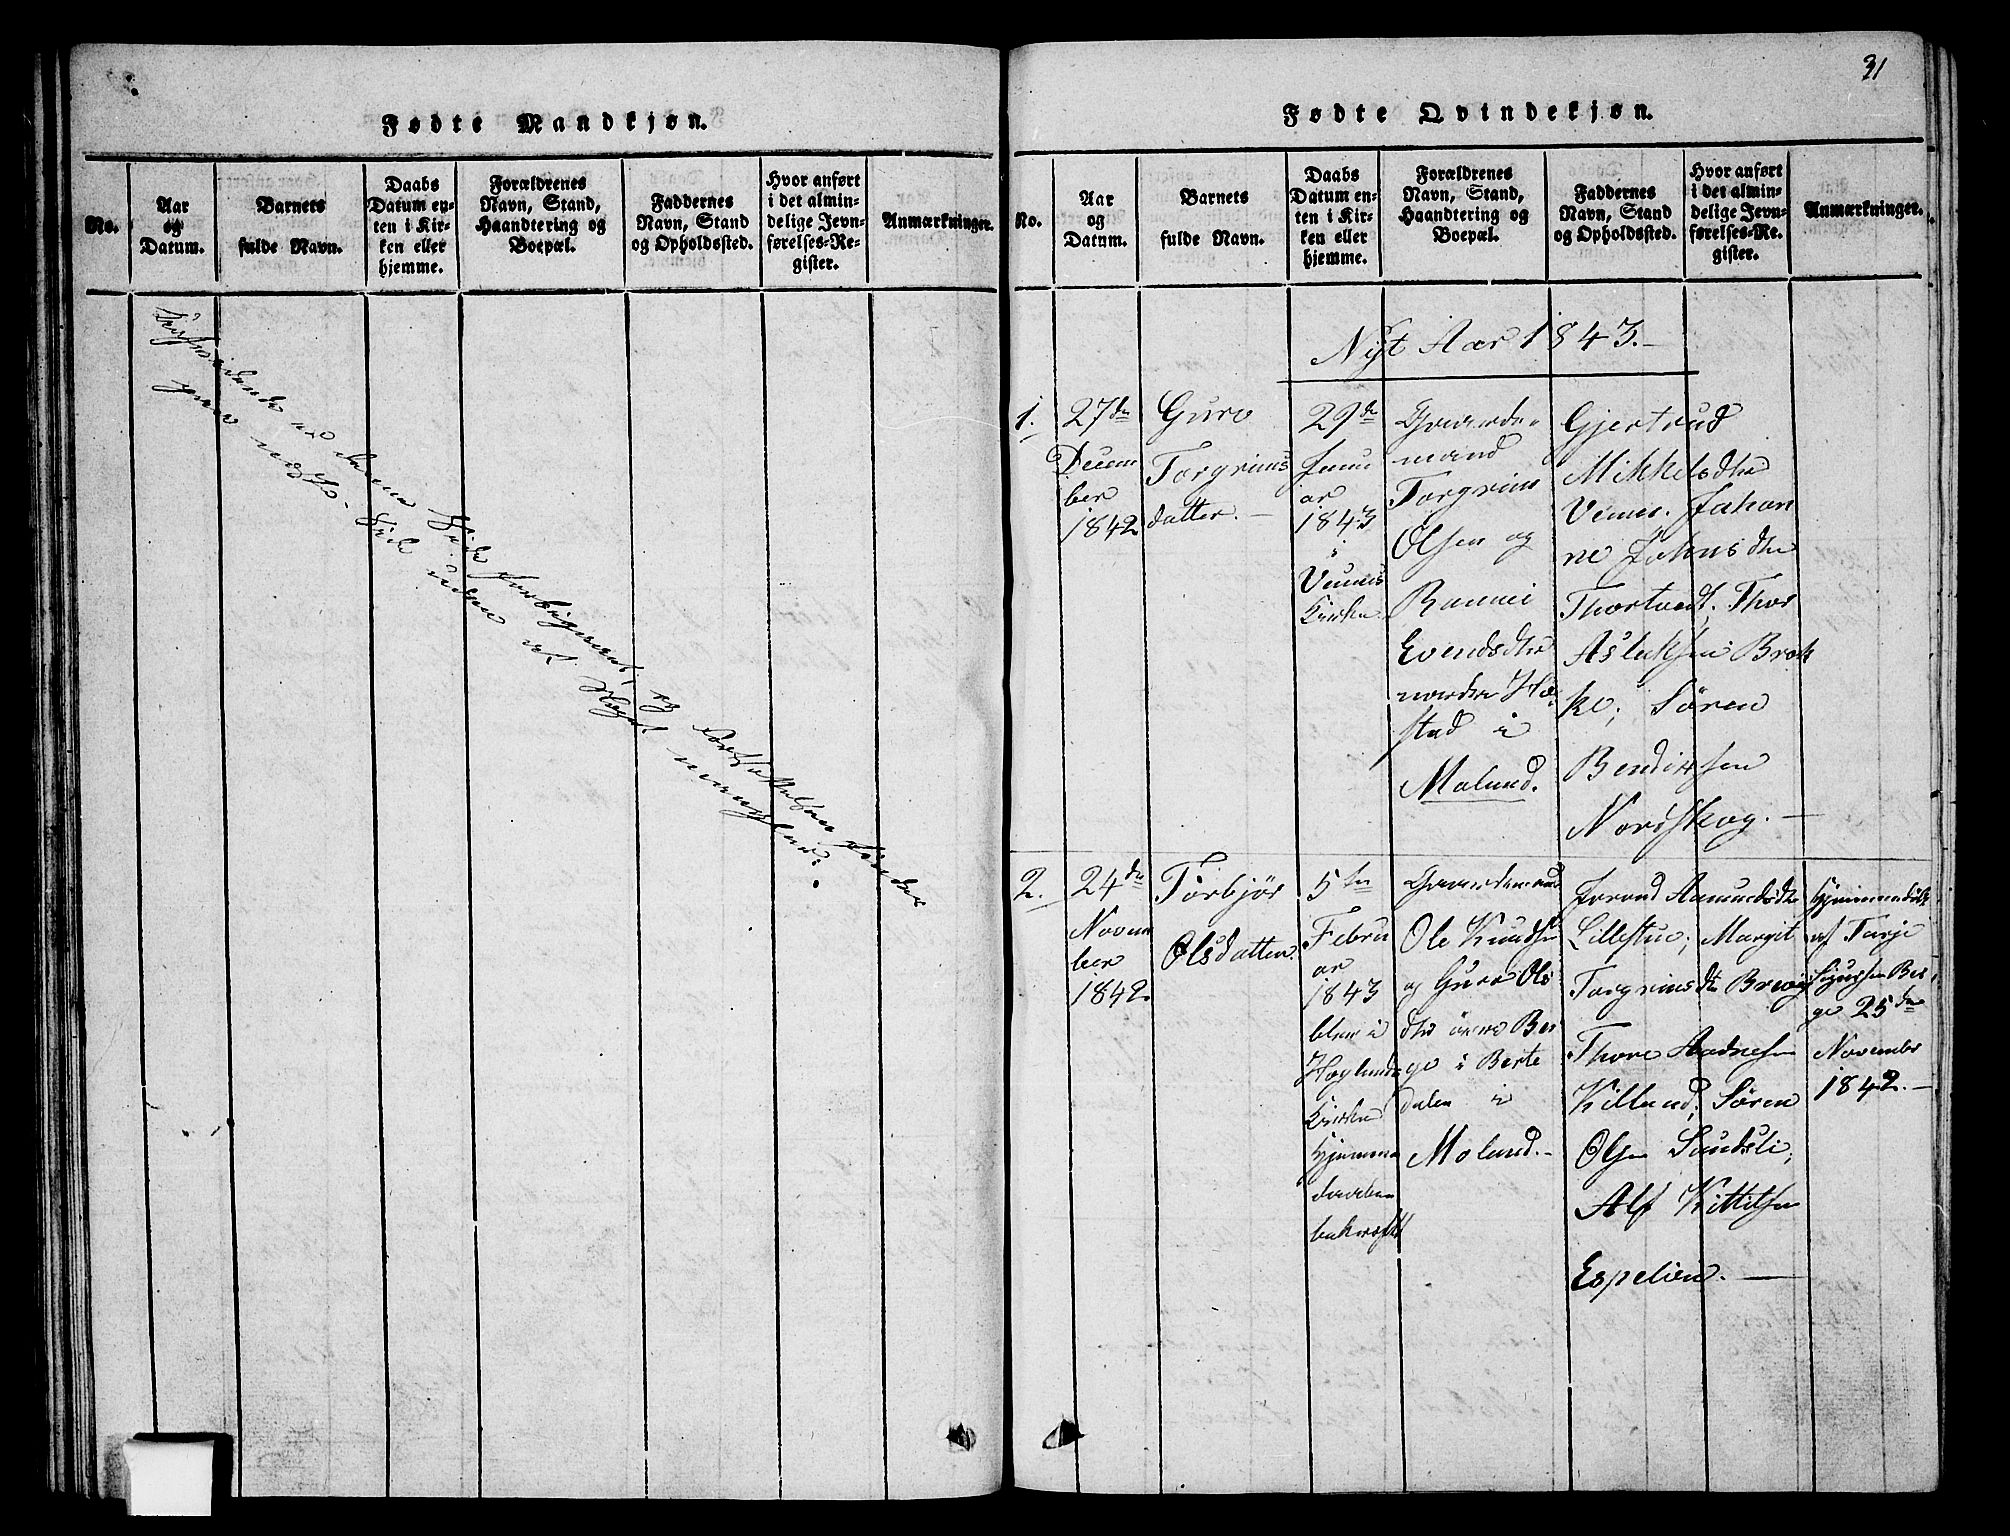 Fødte Mandkjøn.
No.
Aar
og
Datum.
Barnets
fulde Navn.
Daabs
Datum en-
ten i Kir-
ken eller
hjemme.
Forældrenes
Navn, Stand,
Haandtering og
Boepæl.
Faddernes
Navn, Stand
og Opholdssted.
Hvor anført
i det almin-
delige Jevn-
førelses-Re-
gister.
Anmærkninger.
denne Side forbigaaet, og
Side uden at Noget mangler.
31
Fødte Qvindekjøn.
No.
Aar
og
Datum.
Barnets
fulde Navn.
Daabs
Datum en-
ten i Kir-
ken eller
hjemme.
Forældrenes
Navn, Stand,
Haandtering og
Boepæl.
Faddernes
Navn, Stand
og Opholdssted.
Hvor anført
i det almin-
delige Jevn-
førelses-Re-
gister.
Anmærkninger.
Nyt Aar 1843.
1.
27de
Decem
ber
1842
Guro
Torgrims
datter.
29de
Janu
ar
1843
i
Vennes
Kirke.
Gaarde-
mand
Torgrim
Olsen og
Ronnei
Evendsdtr
nordre Ha-
stad i
Moland.
Gjertrud
Mikkelsdtr
Vennes. Johan
ne Johnsdtr
Thortvedt; Thor
Aslaksen Brok
ke; Sören
Bendixsen
Nordskog.
2.
24de
Novem
ber
1842.
Torbjör
Olsdatter.
5te
Febru
ar
1843
blev i
Hoglunds
Kirke
Hjemme
daaben
bekræft
Gaardemand
Ole Knudsen
og Guro Ols
dtr övre Ber
ge i Berte
dalen i
Moland.
Jorond Aamundsdtr
Lillestue; Margit
Torgrimsdtr Brevig
Thore Aadnesen
Killand; Sören
Olsen Sundsli;
Alf Kittilsen
Espelien.
Hjemmedöbt
af Tarje
Sjursen Ber
ge 25de
November
1842.